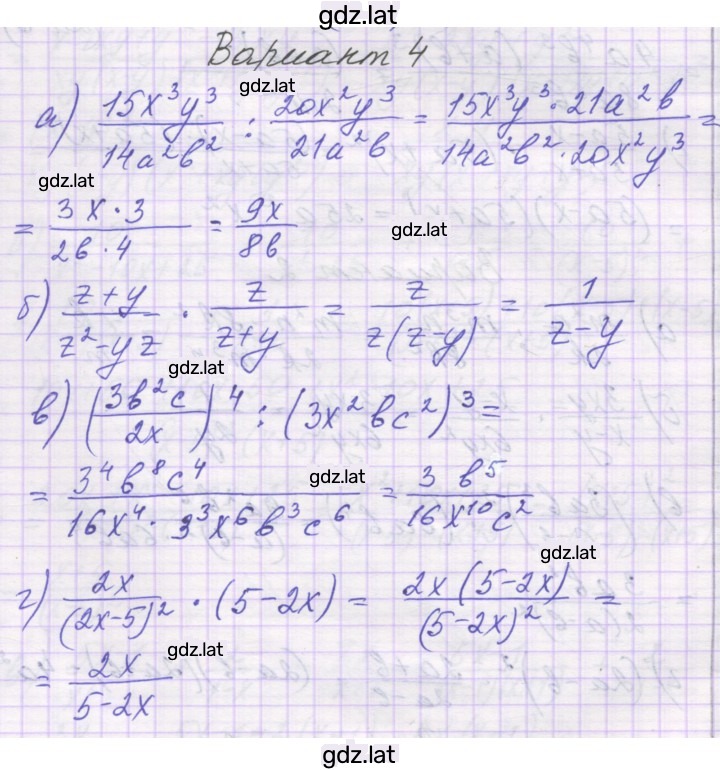 gdz.lat
Вариант 4
gdz.lat
а) 15x³y³/14a²b² : 20x²y³/21a²b = 15x³y³·21a²b/14a²b²·20x²y³ =
gdz.lat
= 3x·3/2b·4 = 9x/8b
gdz.lat
б) z+y/z²-yz · z/z+y = z/z(z-y) = 1/z-y
gdz.lat
в) (3b²c/2x)⁴ : (3x²bc²)³ =
gdz.lat
= 3⁴b⁸c⁴/16x⁴·3³x⁶b³c⁶ = 3b⁵/16x¹⁰c²
gdz.lat
г) 2x/(2x-5)² · (5-2x) = 2x(5-2x)/(5-2x)² =
gdz.lat
= 2x/5-2x
gdz.lat